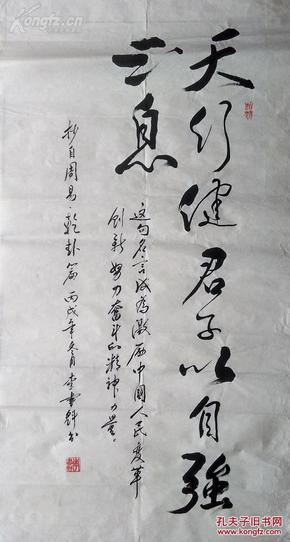 天行健君子以自强
不息
这句名言成为激励中国人民变革
创新努力奋斗的精神力量。
抄自周易·乾卦篇丙戌年冬月李书
孔夫子旧书网
Kongfz.com